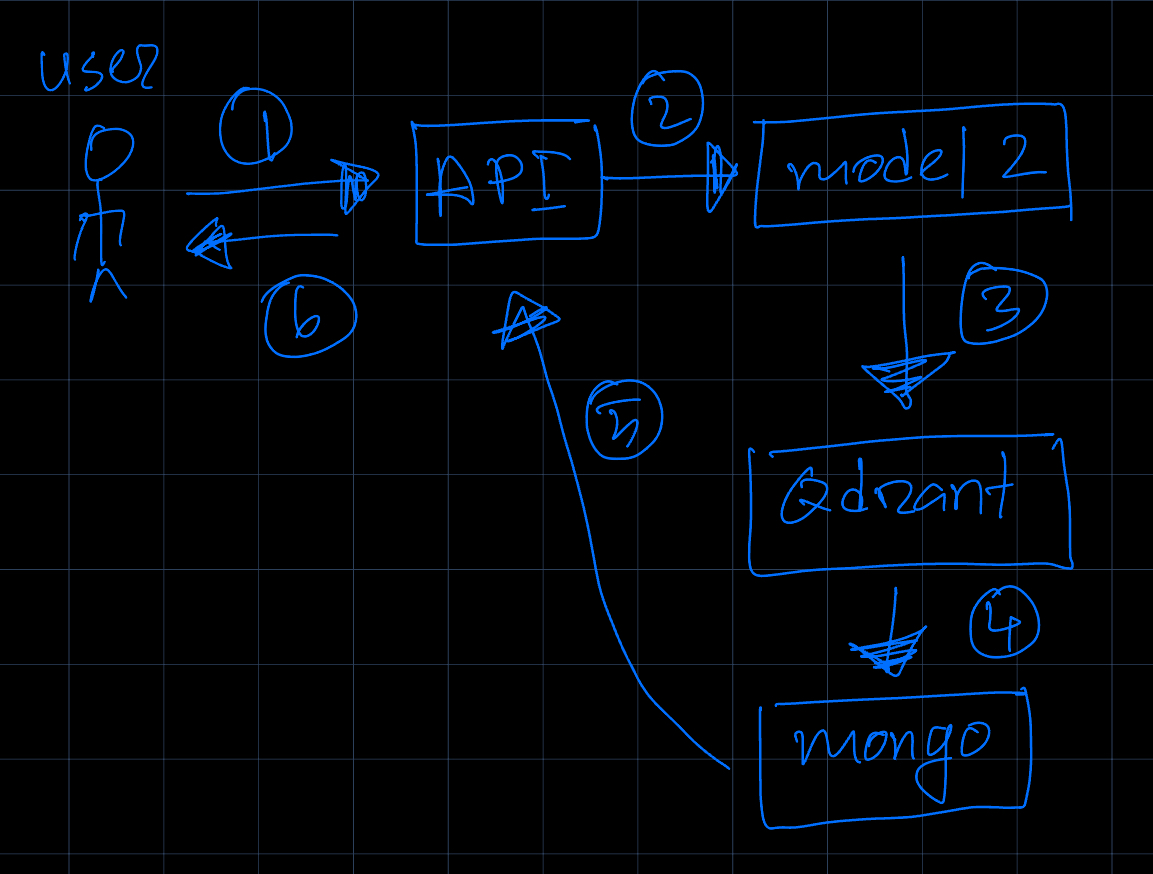 user
1
2
API
model 2
6
3
5
Qdrant
4
mongo